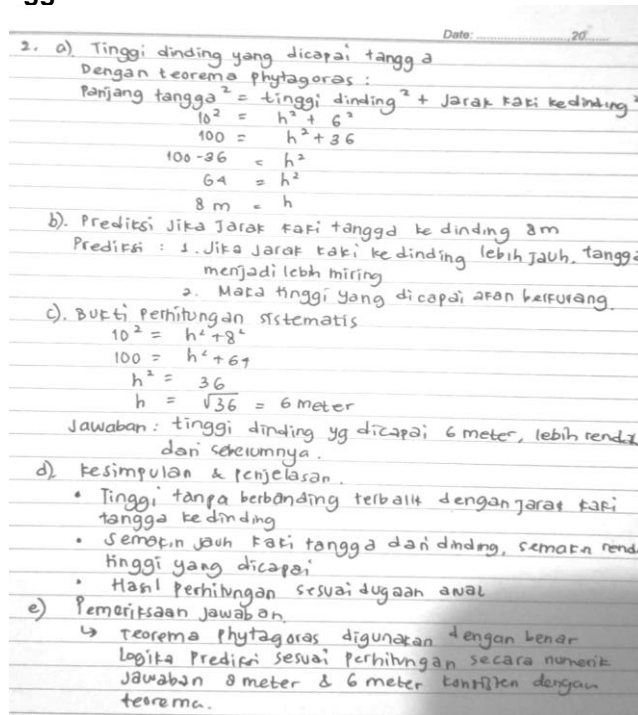 Date: ............................20......
2. a) Tinggi dinding yang dicapai tangga
Dengan teorema phytagoras :
Panjang tangga² = tinggi dinding² + Jarak kaki ke dinding²
10² = h² + 6²
100 = h² + 36
100 - 36 = h²
64 = h²
8 m = h
b). Prediksi Jika Jarak kaki tangga ke dinding 8m
Prediksi : 1. Jika Jarak kaki ke dinding lebih Jauh, tangga
menjadi lebih miring
2. Maka tinggi yang dicapai akan berkurang.
c). Bukti perhitungan sistematis
10² = h² + 8²
100 = h² + 64
h² = 36
h = √36 = 6 meter
Jawaban : tinggi dinding yg dicapai 6 meter, lebih renda
dari sebelumnya.
d). Kesimpulan & penjelasan.
• Tinggi tanpa berbanding terbalik dengan jarak kaki
tangga ke dinding
• Semakin jauh kaki tangga dari dinding, semakin rend
tinggi yang dicapai
• Hasil perhitungan sesuai dugaan awal
e) Pemeriksaan jawaban.
↳ Teorema phytagoras digunakan dengan benar
Logika Prediksi sesuai perhitungan secara numerik
Jawaban 8 meter & 6 meter konsisten dengan
teorema.